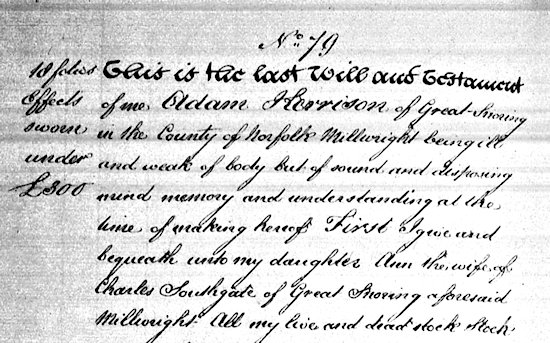 No. 79
18 folios
Effects
sworn
under
£300
This is the last Will and Testament
of me Adam Kerrison of Great Snoring
in the County of Norfolk Millwright being ill
and weak of body but of sound and disposing
mind memory and understanding at the
time of making hereof First I give and
bequeath unto my daughter Ann the wife of
Charles Southgate of Great Snoring aforesaid
Millwright All my live and dead stock stock